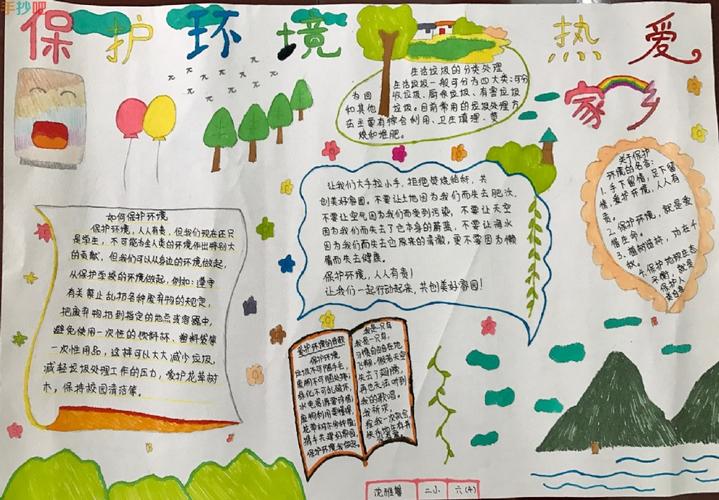 手抄吧
保护环境
热爱
家乡
生活垃圾的分类处理
生活垃圾一般可分为四大类:可
为回收垃圾、厨余垃圾、有害垃圾
和其他垃圾。目前常用的垃圾处理方
法主要有综合利用、卫生填埋、焚
烧和堆肥。
如何保护环境
保护环境,人人有责,但我们现在还只
是学生,不可能为全人类的环境作出特别大
的贡献,但我们可以从身边的环境做起,
从保护学校的环境做起,例如:遵守
有关禁止乱扔各种废弃物的规定,
把废弃物扔到指定的地点或容器中,
避免使用一次性的饮料杯、
一次性用品,这样可以大大减少垃圾,
减轻垃圾处理工作的压力,爱护花草树
木,保持校园清洁等。
让我们大手拉小手,拒绝焚烧秸秆,共
创美好家园,不要让土地因为我们而失去肥沃,
不要让空气因为我们而受到污染,不要让天空
因为我们而失去了它本身的蔚蓝,不要让海水
因为我们而失去它原来的清澈,更不要因为懒
惰而失去健康。
保护环境,人人有责!
让我们一起行动起来,共创美好家园!
关于保护
环境的名言:
1.手下留情,足下留
情,爱护环境,人人有
责。
2.保护环境,就是爱
惜生命。
3.植树造林,功在千
秋。
4.保护地球生态
平衡,就是
保护人
保护环境
我是一只鸟
自由自在地
飞翔
失去了翅膀
再也无法听到
我的歌唱
二小
六(4)